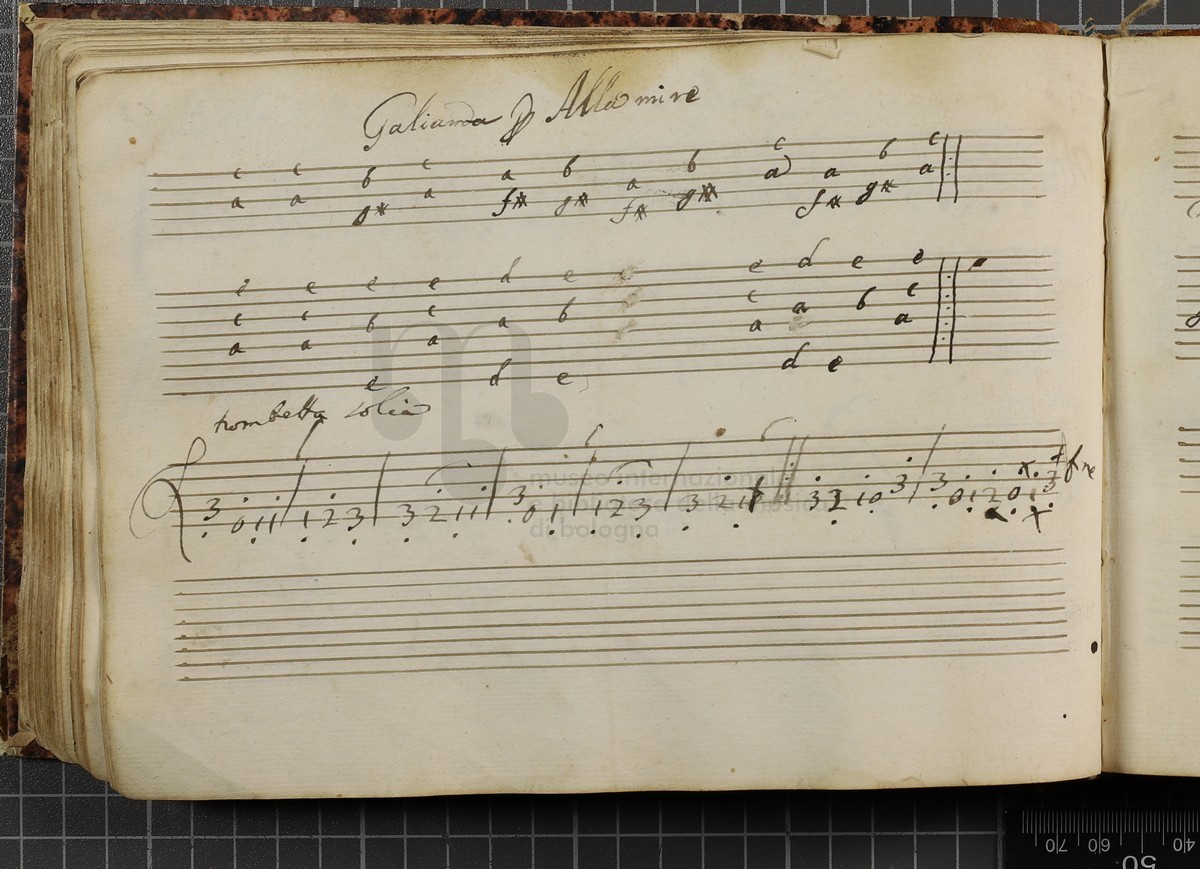 Galiarda P Alla mi re
c c b c a b a b c a b c
a a g# a f# g# f# g# a f# g# a
e e e e d e e d e e
c c b c a b c a b c
a a a a a
e d e d e
trombetta sola
3 0 1 1 1 2 3 3 2 1 1 3 0 1 1 2 3 3 2 1 3 2 1 0 3 3 0 1 2 0 1 3 fine
museo internazionale
e biblioteca della musica
di bologna
70 60 50 40